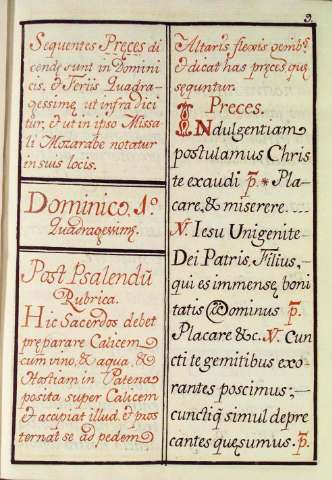 9.
Sequentes Preces di
cendę sunt in Domini
cis, & Feriis Quadra-
gessimę, ut infra dici
tur, & ut in ipso Missa
li Mozarabe notatur
in suis locis.
Dominico. 1º.
Quadragessimę.
Post Psalendũ
Rubrica.
Hic Sacerdos debet
pręparare Calicem
cum vino, & aqua, &
Hostiam in Patena
posita super Calicem
& accipiat illud, & pros
ternat se ad pedem
Altaris flexis genibꝰ
& dicat has pręces quę
sequntur.
Pręces.
INdulgentiam
postulamus Chris
te exaudi p. * Pla-
care, & miserere....
V. Iesu Unigenite
Dei Patris, Filius,
qui es immensę boni
tatis Dominus p.
Placare &c. V. Cun
cti te gemitibus exo-
rantes poscimus;
cunctiq̃ simul depre
cantes quęsumus. p.